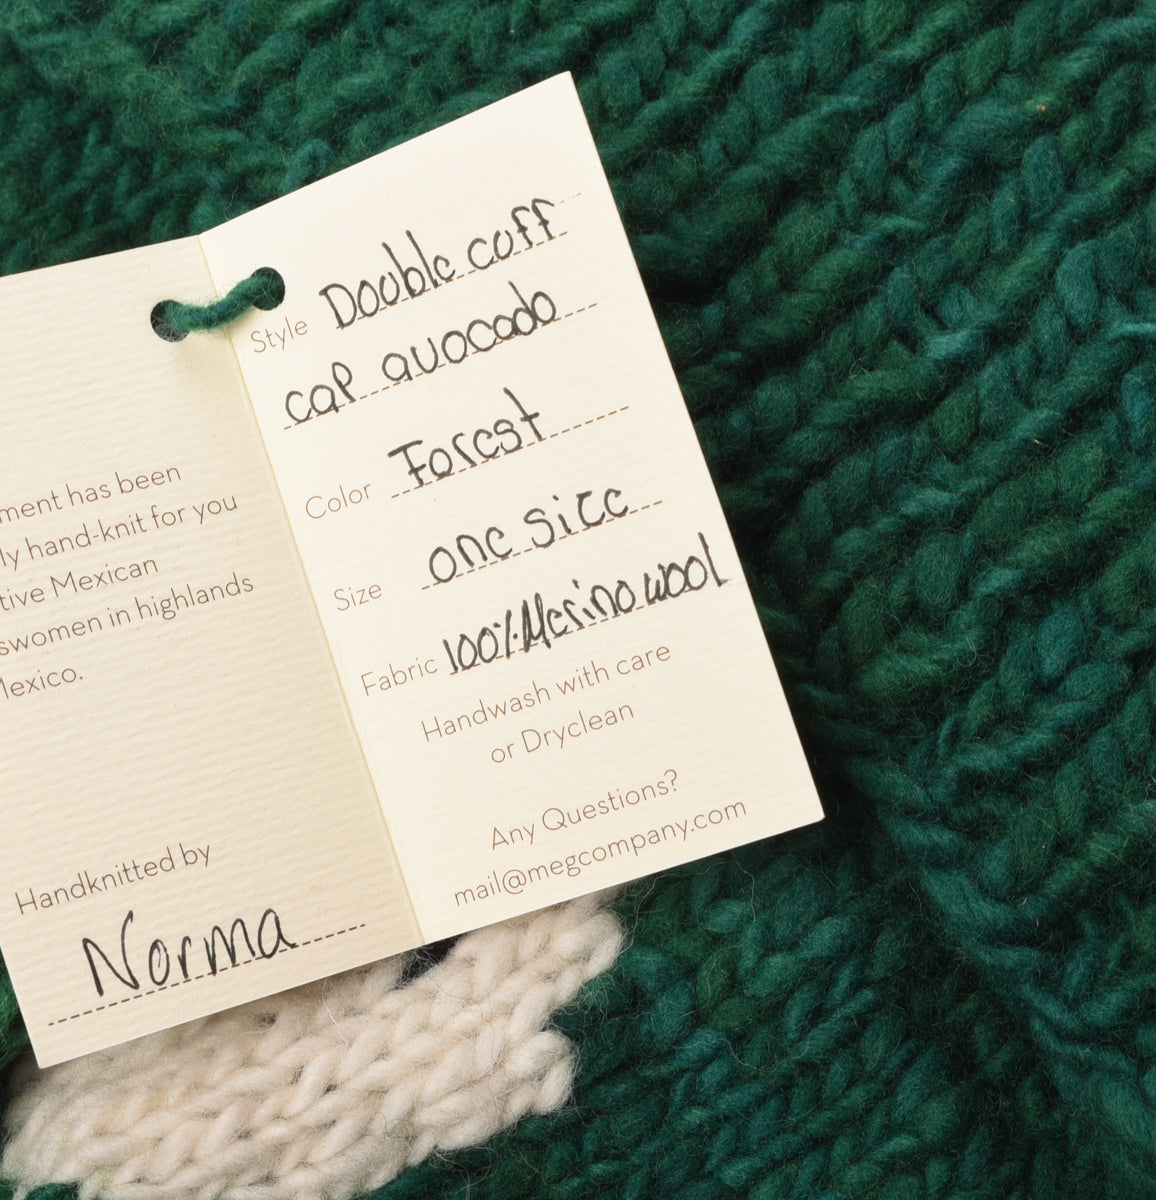 ment has been
ly hand-knit for you
tive Mexican
swomen in highlands
Mexico.
Handknitted by
Norma
Style Double cuff
cap avocado
Color Forest
Size one size
Fabric 100% Merino wool
Handwash with care
or Dryclean
Any Questions?
mail@megcompany.com